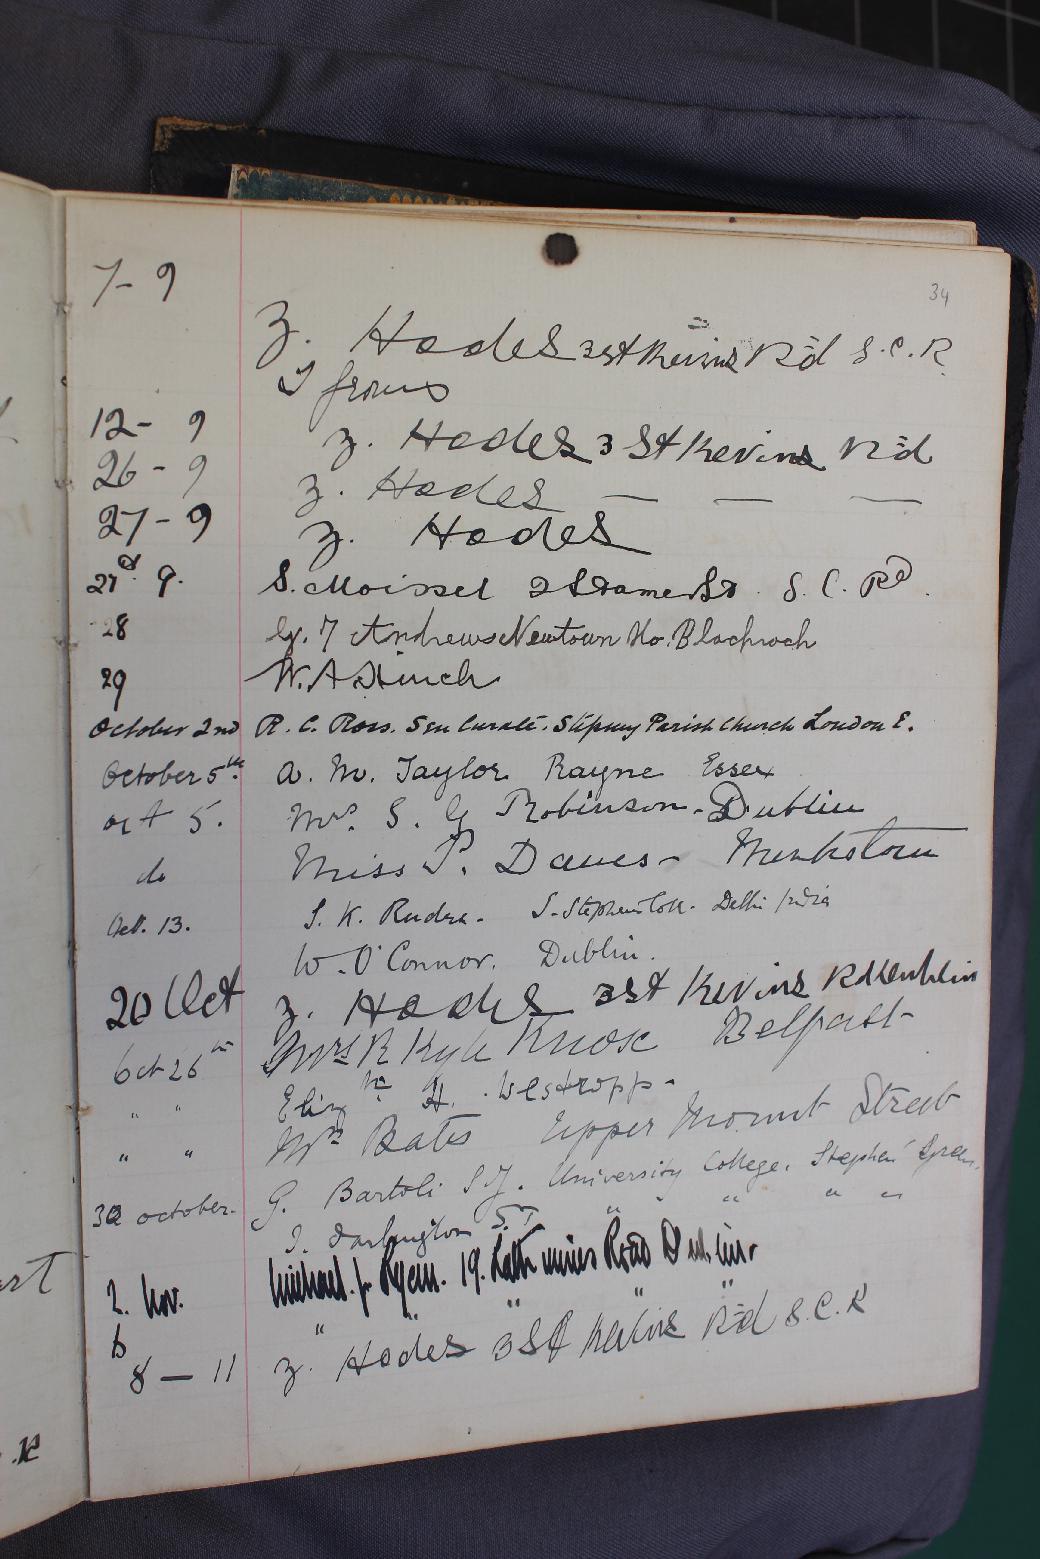 34
7 - 9
Z. Hodes 3 St Kevins R'd S.C.R
12 - 9 Z. Hodes 3 St Kevins R'd
26 - 9 Z. Hodes — — —
27 - 9 Z. Hodes
27 9. S. Moissel 2 Stamer St. S.C. Rd.
28 Andrews Newtown Ho. Blackrock
29 W. A. Hinch
October 2nd R. C. Ross. Sen Curate. Stepney Parish Church London E.
October 5th. A. M. Taylor Rayne Essex
Oct 5. Mrs. S. G Robinson - Dublin
do Miss P. Daves - Monkstown
Oct. 13. S. K. Rudra - S. Stephens Coll. Delhi India
W. O'Connor. Dublin.
20 Oct Z. Hodes 3 St Kevins Rd Dublin
Oct 26th Mrs R Kyle Knox Belfast
" " Elizth H. Westropp -
" " Mrs Bates Upper Mount Street
30 October. G. Bartoli S.J. University College, Stephen' Green.
J. Darlington S.J. " " " "
2. Nov. Michael. J. Ryan. 19. Rathmines Road Dublin.
6 " " " " "
8 — 11 Z. Hodes 3 St Kevins R'd S.C.R